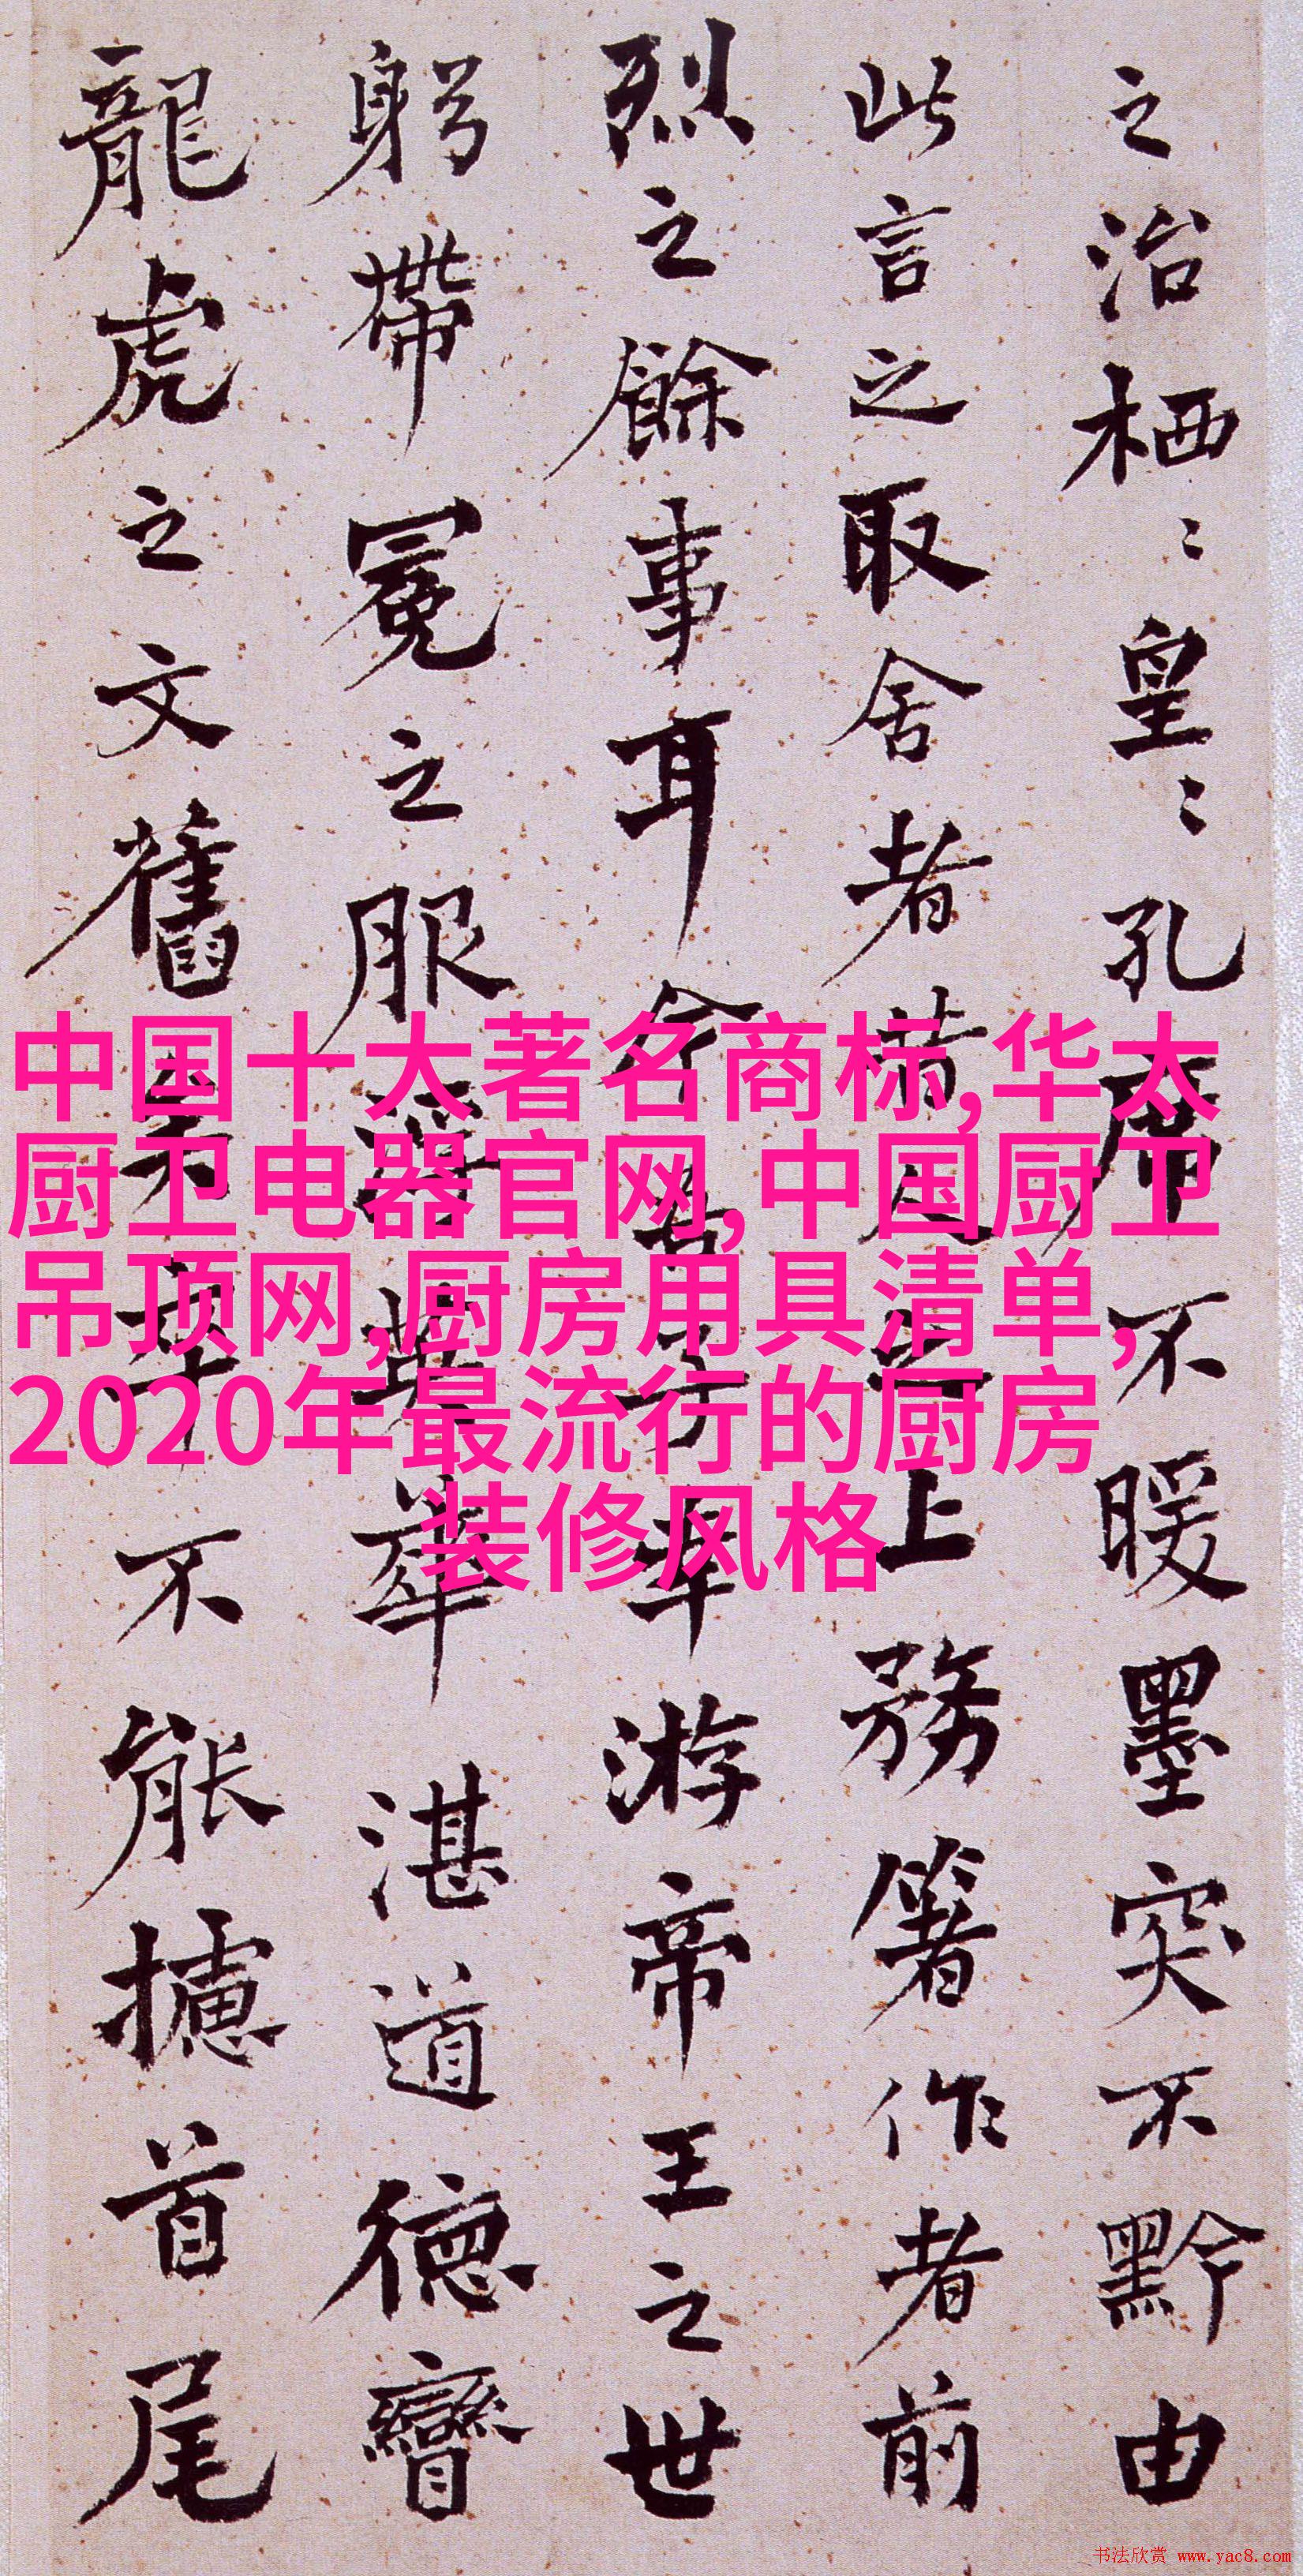 之治栖〻皇〻孔席不暖墨突不黔由
此言之取舍者昔人之上務箸作者前
烈之餘事耳今吾子幸游帝王之世
躬帶冕之服浮英華湛道德矕
龍虎之文舊矣卒不能攄首尾
中国十大著名商标,华太
厨卫电器官网,中国厨卫
吊顶网,厨房用具清单,
2020年最流行的厨房
装修风格
书法欣赏 www.yac8.com